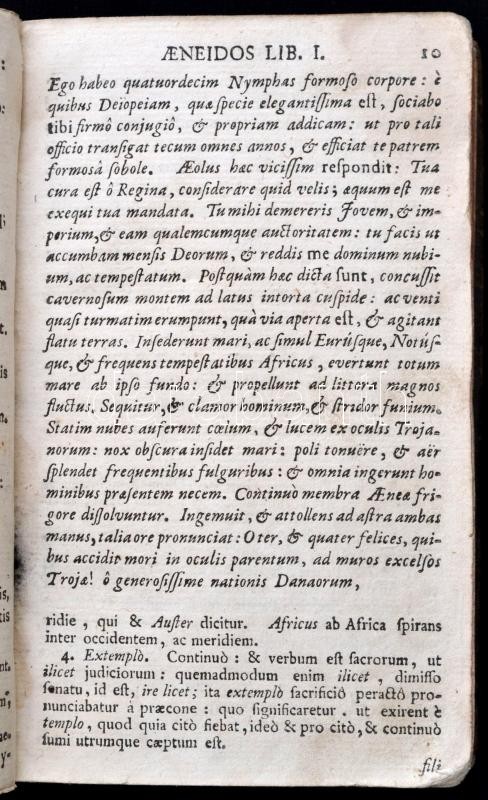 ÆNEIDOS LIB. I. 10
Ego habeo quatuordecim Nymphas formoso corpore: è
quibus Deiopeiam, quæ specie elegantissima est, sociabo
tibi firmô conjugiô, & propriam addicam: ut pro tali
officio transigat tecum omnes annos, & efficiat te patrem
formosâ sobole. Æolus hæc vicissim respondit: Tua
cura est ô Regina, considerare quid velis; æquum est me
exequi tua mandata. Tu mihi demereris Jovem, & im-
perium, & eam qualemcumque auctoritatem: tu facis ut
accumbam mensis Deorum, & reddis me dominum nubi-
um, ac tempestatum. Postquàm hæc dicta sunt, concussit
cavernosum montem ad latus intorta cuspide: ac venti
quasi turmatim erumpunt, quà via aperta est, & agitant
flatu terras. Insederunt mari, ac simul Eurúsque, Notús-
que, & frequens tempestatibus Africus, evertunt totum
mare ab ipso fundo: & propellunt ad littora magnos
fluctus. Sequitur, & clamor hominum, & stridor funium.
Statim nubes auferunt cœlum, & lucem ex oculis Troja-
norum: nox obscura insidet mari: poli tonuêre, & aër
splendet frequentibus fulguribus: & omnia ingerunt ho-
minibus præsentem necem. Continuò membra Æneæ fri-
gore dissolvuntur. Ingemuit, & attollens ad astra ambas
manus, talia ore pronunciat: O ter, & quater felices, qui-
bus accidit mori in oculis parentum, ad muros excelsos
Trojæ! ô generosissime nationis Danaorum,
ridie, qui & Auster dicitur. Africus ab Africa spirans
inter occidentem, ac meridiem.
4. Extemplò. Continuò: & verbum est sacrorum, ut
ilicet judiciorum: quemadmodum enim ilicet, dimisso
senatu, id est, ire licet; ita extemplò sacrificiô peractô pro-
nunciabatur à præcone: quo significaretur. ut exirent è
templo, quod quia citò fiebat, ideò & pro citò, & continuò
sumi utrumque cæptum est.
fili